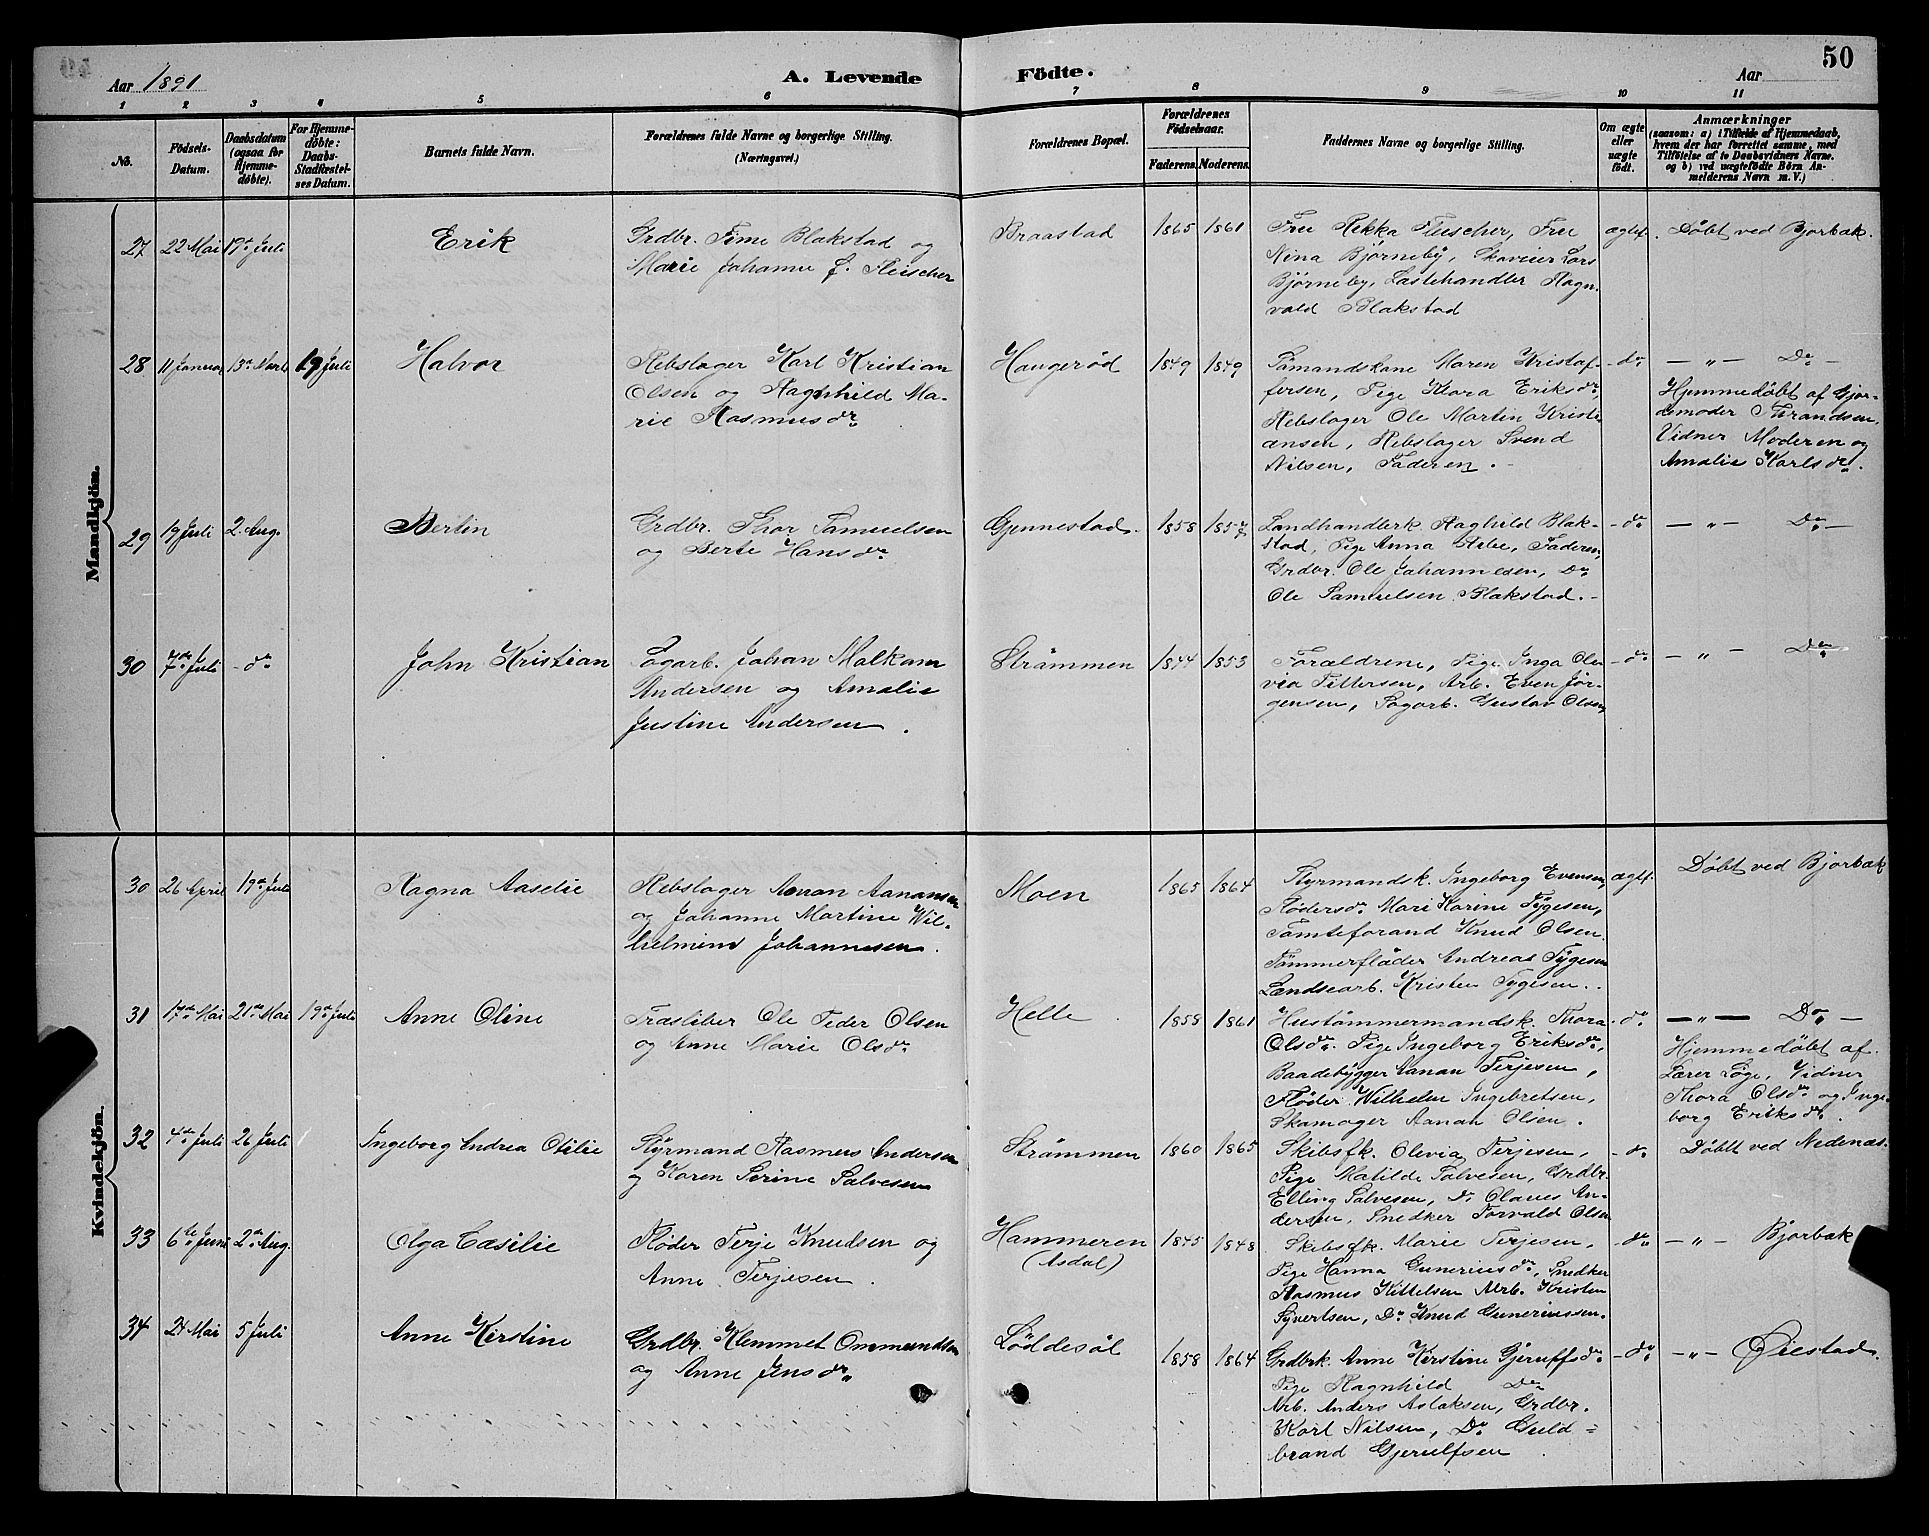 50
Aar 1891
A. Levende
Födte.
Aar
1 2 3 4 5 6 7 8 9 10 11
No.
Födsels-
Datum.
Daabsdatum
(ogsaa for
Hjemme-
döbte).
For Hjemme-
döbte:
Daabs-
Stadfæstel-
ses Datum.
Barnets fulde Navn.
Forældrenes fulde Navne og borgerlige Stilling.
(Næringsvei.)
Forældrenes Bopæl.
Forældrenes
Födselsaar.
Faderens. Moderens.
Faddernes Navne og borgerlige Stilling.
Om ægte
eller
uægte
födt.
Anmærkninger
(saasom: a) i Tilfælde af Hjemmedaab,
hvem der har forrettet samme, med
Tilföielse af to Daabsvidners Navne.
og b) ved uægtefödte Börn An-
melderens Navn m. V.)
Mandkjön.
27 22 Mai 19de Juli
Erik
Grdbr. Time Blakstad og
Marie Johanne f. Fleischer
Braastad
1865 1861
Fru Rekka Fleischer, Frue
Nina Bjørneby, Skoveier Lars
Bjørneby, Lastehandler Ragn-
vald Blakstad
ægtef.
Döbt ved Bjorbæk.
28 11 Januar 13de Marts 19 Juli
Halvor
Rebslager Karl Kristian
Olsen og Ragnhild Ma-
rie Rasmusdr
Haugeröd
1849 1849
Sömandskone Maren Kristof-
fersen, Pige Klara Eriksdr,
Rebslager Ole Martin Kristi-
ansen, Rebslager Svend
Nilsen, Faderen. -
- do
- " - Do -
Hjemmedöbt af Gjor-
demoder Strandsen,
Vidner Moderen og
Amalie Karlsdr.
29 19 Juli 2. Aug.
Bertin
Grdbr. Thor Samuelsen
og Berte Hansdr
Gjennestad.
1858
Landhandlerk. Raghild Blak-
stad, Pige Anna Arbe, Faderen,
Grdbr. Ole Johannesen, Do
Ole Samuelsen Blakstad. -
- do
- " - Do -
30 7de Juli - do
John Kristian
Sagarb. Johan Malkom
Andersen og Amalie
Justine Andersen.
Strömmen
1844 1853
Forældrene, Pige Inga Ole-
via Pettersen, Arb. Even Jör-
gensen, Sagarb. Gustav Olsen
- do
- " - Do
Kvindekjön.
30 26 April 19de Juli
Ragna Aaselie
Rebslager Aanan Aanansen
og Johanne Martine Wil-
helmine Johannesen.
Moen
1865 1864
Styrmandsk. Ingeborg Evensen,
Flödersdr Mari Karine Tygesen,
Tomteforand Knud Olsen.
Tömmerflöder Andreas Tygesen
Lændsearb. Kristen Tygesen.
ægtef.
Döbt ved Bjorbæk
31 17de Mai 21de Mai 19de Juli
Anne Oline
Træsliber Ole Peder Olsen
og Anne Marie Olsdr
Helle
1858 1861
Hustömmermandsk. Thora
Olsdr. Pige Ingeborg Eriksdr,
Baadebygger Aanan Terjesen,
Flöder Wilhelm Ingebretsen,
Skomager Aanan Olsen.
- do
- " - Do -
Hjemmedöbt af
Lærer Löge, Vidner
Thora Olsdr og Inge-
borg Eriksdr.
32 4de Juli 26 Juli
Ingeborg Andrea Otilie
Styrmand Rasmus Andersen
og Karen Serine Salvesen
Strömmen
1860 1865
Skibsfk. Olevia Terjesen,
Pige Matilde Salvesen, Grdbr.
Elling Salvesen, Do Olaves An-
dersen, Snedker Torvald Olsen
- do
Döbt ved Nedenæs.
33 6te Juni 2de Aug.
Olga Casilie
Flöder Terje Knudsen og
Anne Terjesen.
Hammeren
(Asdal)
1845 1848
Skibsfk. Marie Terjesen,
Pige Hanna Guneriusdr, Snedker
Rasmus Kittelsen Arb. Kristen
Syvertsen, Do Knud Guneriussen.
- do
- " - Bjorbæk
34 24 Mai 5 Juli
Anne Kirstine
Grdbr. Klemmet Ommundsen
og Anne Jensdr
Löddesöl
1858 1864
Grdbrk. Anne Kirstine Gjerulfsdr
Pige Ragnhild Do
Arb. Anders Aslaksen, Grdbr.
Karl Nilsen, Do Guld-
brand Gjerulfsen
- do
- " - Öiestad.